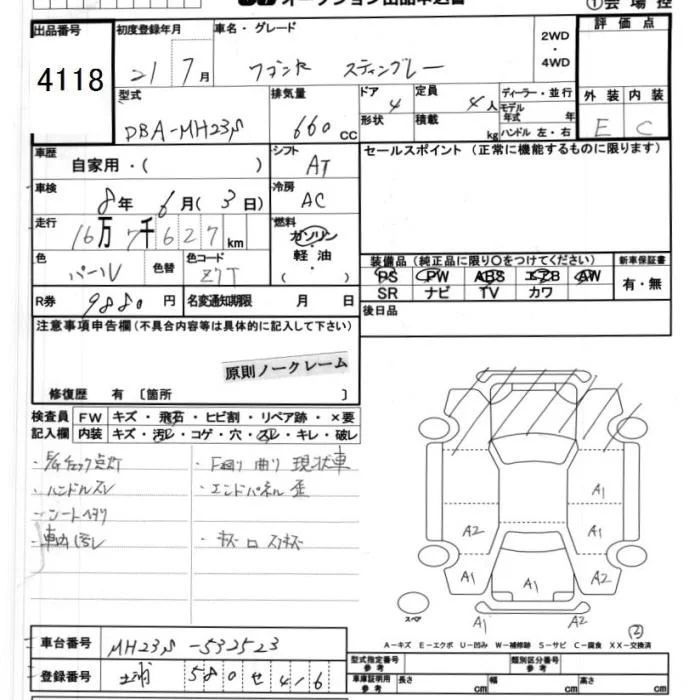 オークション出品申込書
①会場控
出品番号 4118
初度登録年月 21 7月
車名・グレード ワゴンR スティングレー
2WD・4WD
評価点
外装 内装
E C
型式 DBA-MH23S
排気量 660cc
ドア 4
形状
定員 4人
積載 kg
ディーラー・並行
モデル年式 年
ハンドル 左・右
車歴 自家用・( )
シフト AT
セールスポイント(正常に機能するものに限ります)
車検 8年 6月(3日)
冷房 AC
走行 16万7千627km
燃料 ガソリン 軽油 ( )
色 パール 色替
色コード Z7T
装備品(純正品に限り○をつけてください) 新車保証書
PS PW ABS エアB AW 有・無
SR ナビ TV カワ
R券 9880円 名変通知期限 月 日
後日品
注意事項申告欄(不具合内容等は具体的に記入して下さい)
原則ノークレーム
修復歴 有〔箇所 〕
検査員 FW キズ・飛石・ヒビ割・リペア跡・×要
記入欄 内装 キズ・汚レ・コゲ・穴・スレ・キレ・破レ
・E/Gチェック点灯 ・F廻り曲り 現状車
・ハンドルスレ ・エンドパネル歪
・シートヘタリ
・車内汚レ ・キズ ロ スリキズ
A1
A2 A1
A1 A1 A2
スペア A1 A2
②
A-キズ E-エクボ U-凹み W-補修跡 S-サビ C-腐食 XX-交換済
車台番号 MH23S-532523
型式指定番号 参考 類別区分番号 参考
登録番号 土浦 580 せ 416
車庫証明用 参考 長さ cm 幅 cm 高さ cm